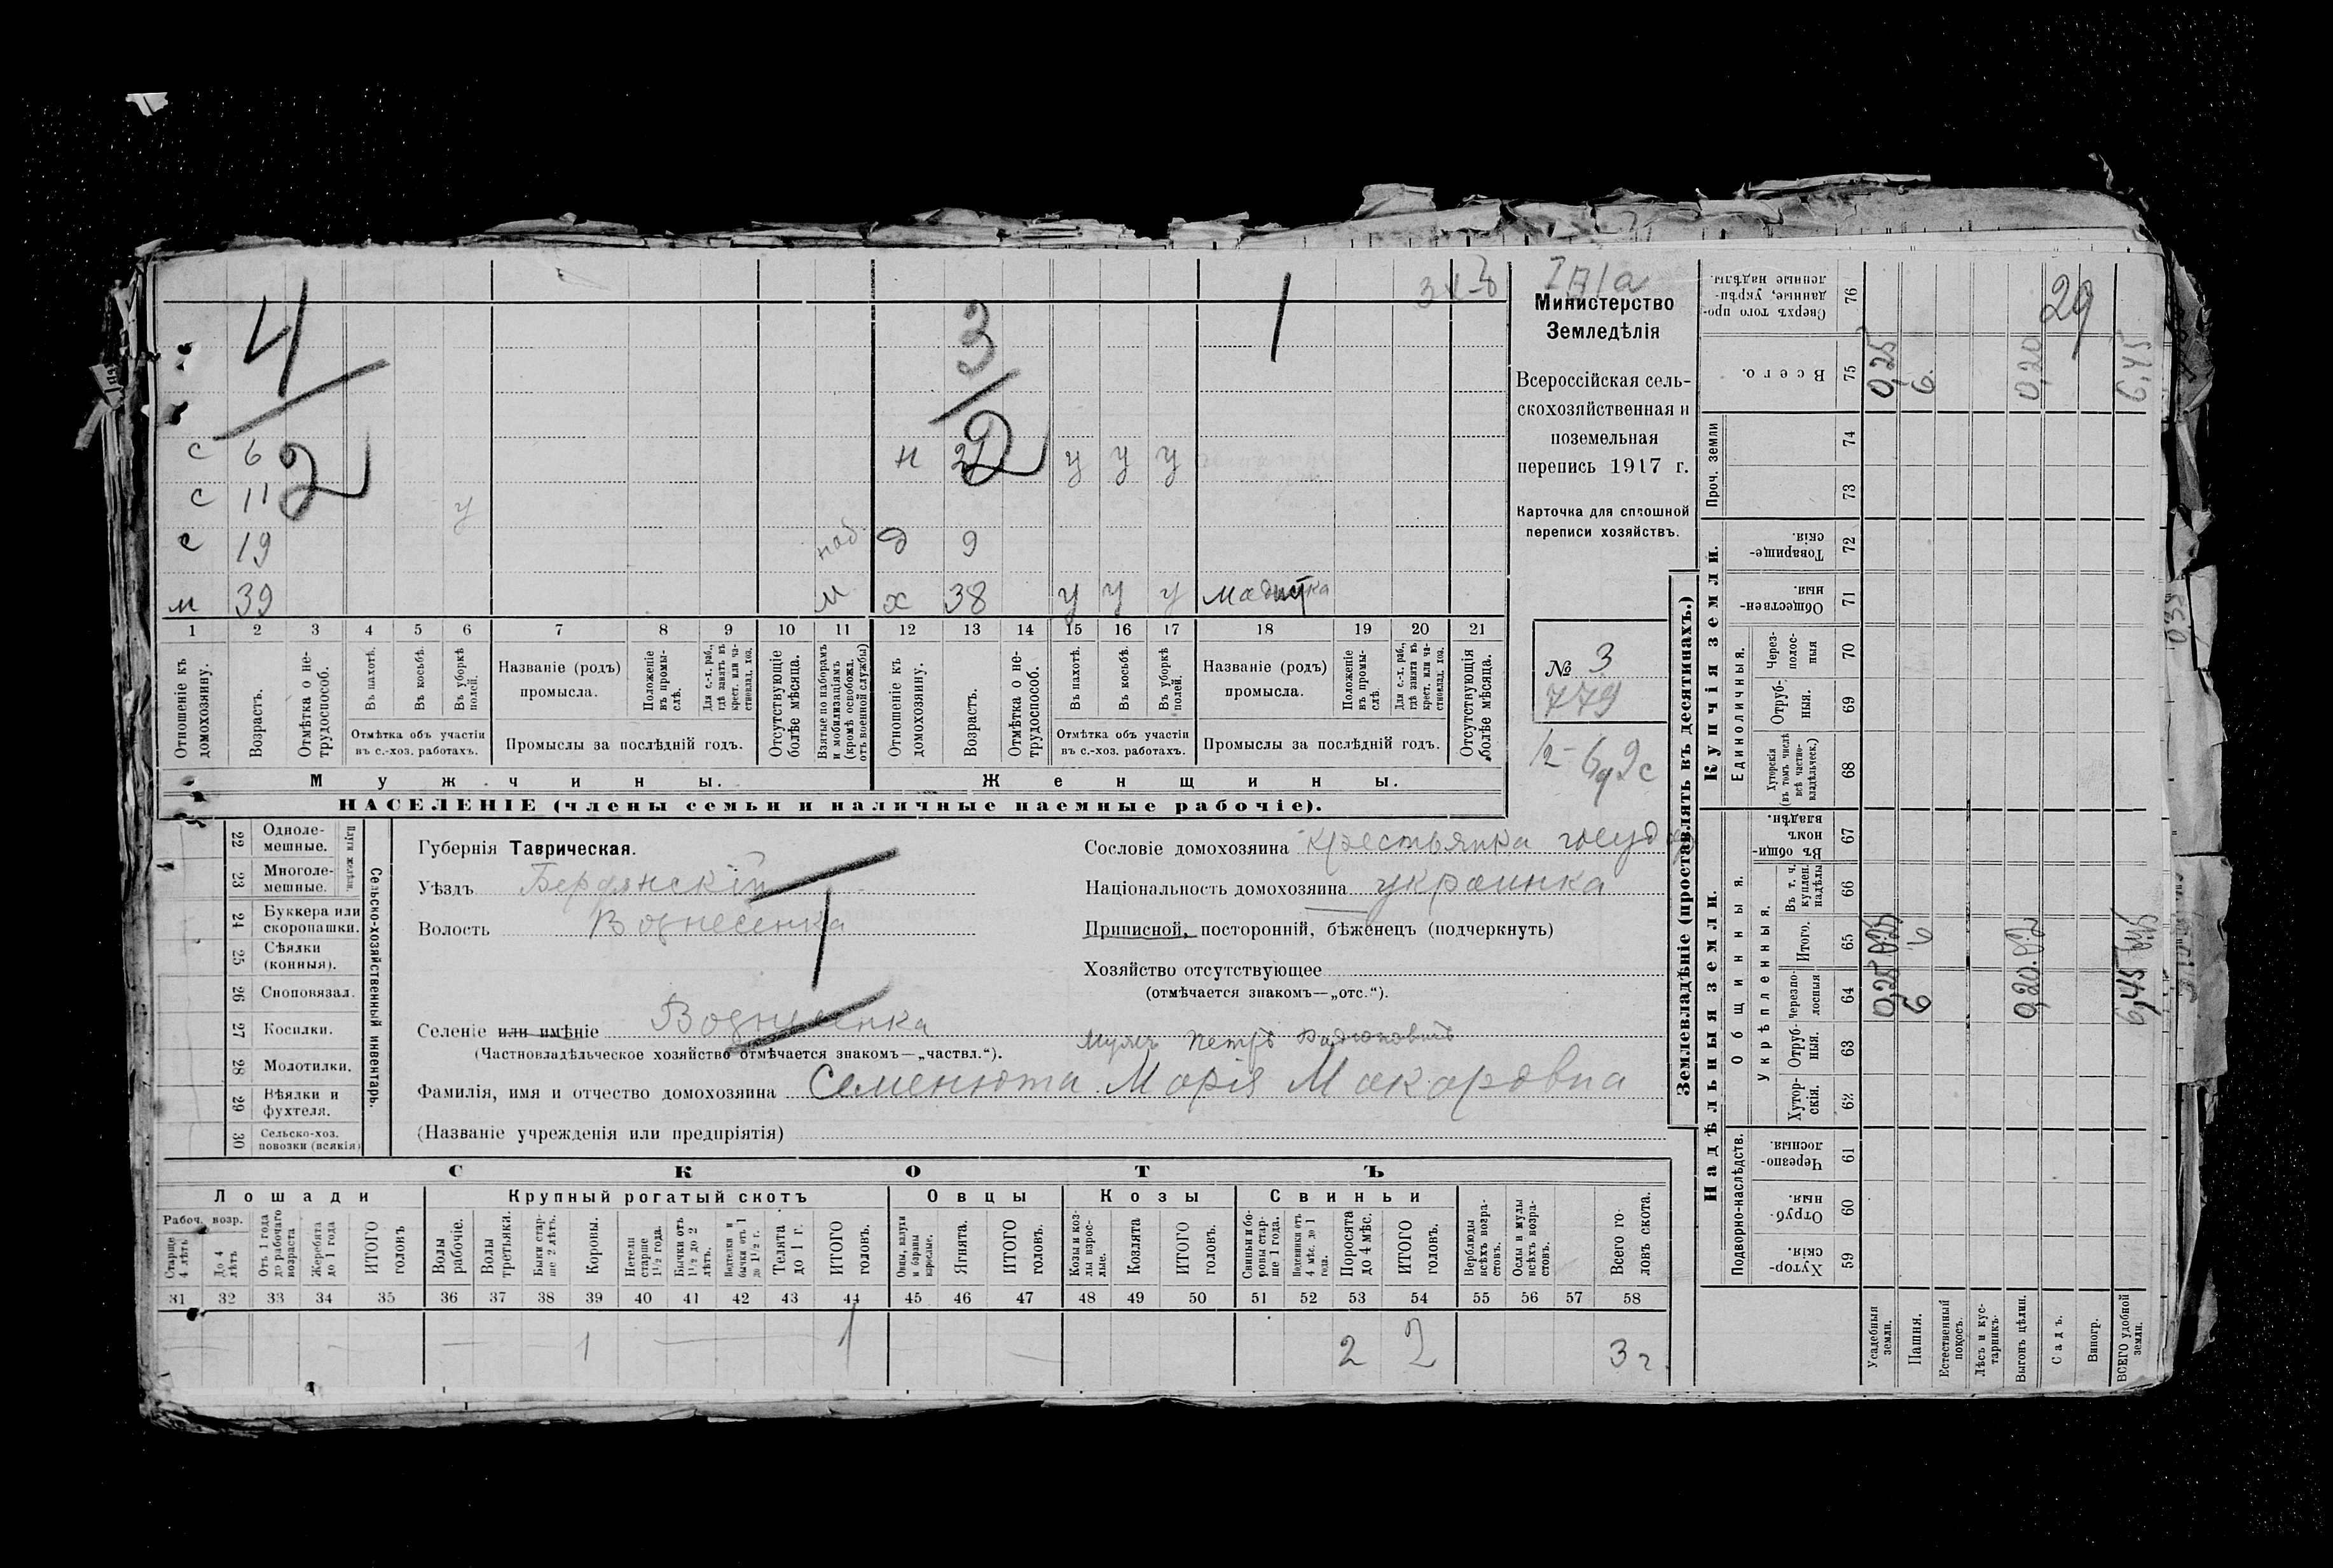 4
2
3
2
1
Министерство
Земледѣлія
Всероссійская сель-
скохозяйственная и
поземельная
перепись 1917 г.
Карточка для сплошной
переписи хозяйствъ.
№ 3
779
с 6
с 11 у
с 19
м 39
н у у у
д 9
х 38 у у у
1 2 3 4 5 6 7 8 9 10 11 12 13 14 15 16 17 18 19 20 21
Отношеніе къ домохозяину.
Возрастъ.
Отмѣтка о не-трудоспособ.
Въ пахотѣ.
Въ косьбѣ.
Въ уборкѣ полей.
Отмѣтка объ участіи въ с.-хоз. работахъ.
Названіе (родъ) промысла.
Положеніе въ промы-слѣ.
Для с.-х. раб., гдѣ занятъ въ крест. или ча-стновлад. хоз.
Промыслы за послѣдній годъ.
Отсутствующіе болѣе мѣсяца.
Взятые по наборамъ и мобилизаціямъ (кромѣ освобожд. отъ военной службы)
Отношеніе къ домохозяину.
Возрастъ.
Отмѣтка о не-трудоспособ.
Въ пахотѣ.
Въ косьбѣ.
Въ уборкѣ полей.
Отмѣтка объ участіи въ с.-хоз. работахъ.
Названіе (родъ) промысла.
Положеніе въ промы-слѣ.
Для с.-х. раб., гдѣ занята въ крест. или ча-стновлад. хоз.
Промыслы за послѣдній годъ.
Отсутствующія болѣе мѣсяца.
Мужчины.
Женщины.
НАСЕЛЕНІЕ (члены семьи и наличные наемные рабочіе).
22 Одноле-мешные.
23 Многоле-мешные.
Плуги желѣзн.
24 Буккера или скоропашки.
25 Сѣялки (конныя).
26 Сноповязал.
27 Косилки.
28 Молотилки.
29 Вѣялки и фухтеля.
30 Сельско-хоз. повозки (всякія)
Сельско-хозяйственный инвентарь.
Губернія Таврическая.
Уѣздъ Бердянскій
Волость Вознесенка
Селеніе или имѣніе Вознесенка
(Частновладѣльческое хозяйство отмѣчается знакомъ—„частвл.“).
Фамилія, имя и отчество домохозяина Семенюта Марія Макаровна
(Названіе учрежденія или предпріятія)
Сословіе домохозяина крестьянка госуд
Національность домохозяина украинка
Приписной, посторонній, бѣженецъ (подчеркнуть)
Хозяйство отсутствующее
(отмѣчается знакомъ—„отс.“).
Петръ
СКОТЪ
Лошади
Крупный рогатый скотъ
Овцы
Козы
Свиньи
Рабоч. возр.
Старше 4 лѣтъ
До 4 лѣтъ
Отъ 1 года до рабочаго возраста
Жеребята до 1 года
ИТОГО головъ
Волы рабочіе.
Волы третьяки.
Быки стар-ше 2 лѣтъ.
Коровы.
Нетели старше 1½ года.
Бычки отъ 1½ до 2 лѣтъ.
Подтелки и бычки отъ 1 до 1½ г.
Телята до 1 г.
ИТОГО головъ.
Овцы, валухи и бараны взрослые.
Ягнята.
ИТОГО головъ.
Козы и коз-лы взрос-лые.
Козлята
ИТОГО головъ.
Свиньи и бо-ровы стар-ше 1 года.
Подсвинки отъ 4 мѣс. до 1 года.
Поросята до 4 мѣс.
ИТОГО головъ.
Верблюды всѣхъ возра-стовъ.
Ослы и мулы всѣхъ возра-стовъ.
Всего го-ловъ скота.
31 32 33 34 35 36 37 38 39 40 41 42 43 44 45 46 47 48 49 50 51 52 53 54 55 56 57 58
1 1 2 2 3 г.
Землевладѣніе (проставлять въ десятинахъ.)
Надѣльныя земли.
Купчія земли.
Подворно-наслѣдств.
Общинныя.
Укрѣпленныя.
Единоличныя.
Проч. земли
Сверхъ того про-данные, укрѣп-ленные надѣлы. 76
Всего. 75
74
73
Товарище-скія. 72
Обществен-ныя. 71
Через-полос-ныя 70
Отруб-ныя. 69
Хуторскія (въ томъ числѣ всѣ частно-владѣльческ.) 68
Въ общи-номъ владѣн. 67
Въ т. ч. куплен. надѣлы 66
Итого. 65
Черезпо-лосныя 64
Отруб-ныя. 63
Хутор-скія. 62
Черезпо-лосныя 61
Отруб-ныя. 60
Хутор-скія. 59
Усадебныя земли.
Пашня.
Естественный покосъ.
Лѣсъ и кус-тарникъ.
Выгонъ цѣлин.
Садъ.
Виногр.
ВСЕГО удобной земли.
0,25 6 0,20 6,45
29
6
0,25 6 0,20 6,45